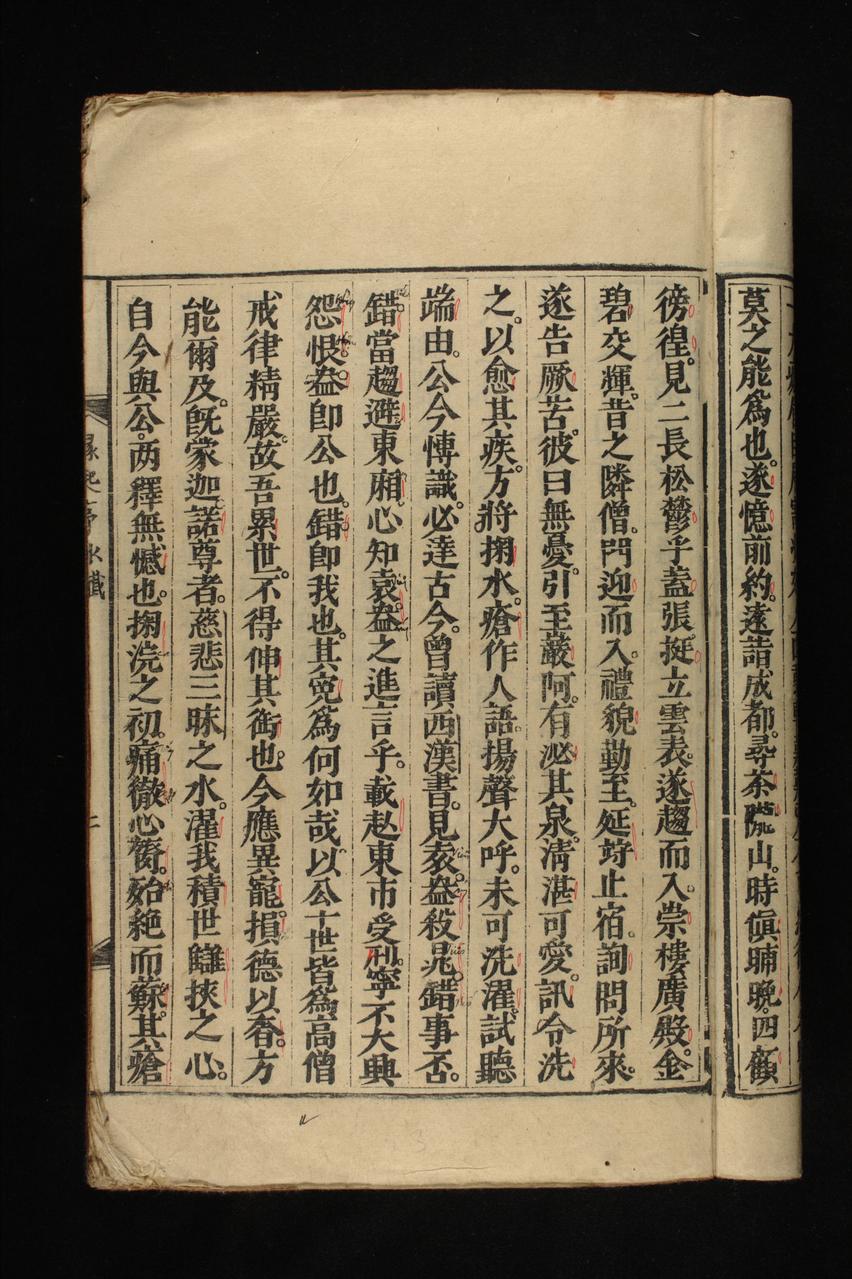 莫之能爲也。遂憶前約。遠詣成都。尋茶隴山。時傎晡晚。四顧
徬徨。見二長松欝乎蓋張挺立雲表。遂趨而入。崇樓廣殿。金
碧交輝。昔之隣僧。門迎而入。禮貌勤至。延竚止宿。詢問所來。
遂告厥苦。彼曰無憂。引至巖阿。有泌其泉。清湛可愛。訊令洗
之。以愈其疾。方將掬水。瘡作人語。揚聲大呼。未可洗濯。試聽
端由。公今愽識。必達古今。曾讀西漢書。見袁盎殺晁。錯事否。
錯當趨避東廂。心知袁盎之進言乎。載赴東市受刑。寧不大興
怨恨。盎卽公也。錯卽我也。其寃爲何如哉以公十世皆爲高僧
戒律精嚴。故吾累世。不得伸其銜也。今應異寵。損德以香。方
能爾及。旣蒙迦諾尊者。慈悲三昧之水。濯我積世讎挾之心。
自今與公。两釋無憾也。掬浣之初。痛徹心膂。殆絶而蘇。其瘡